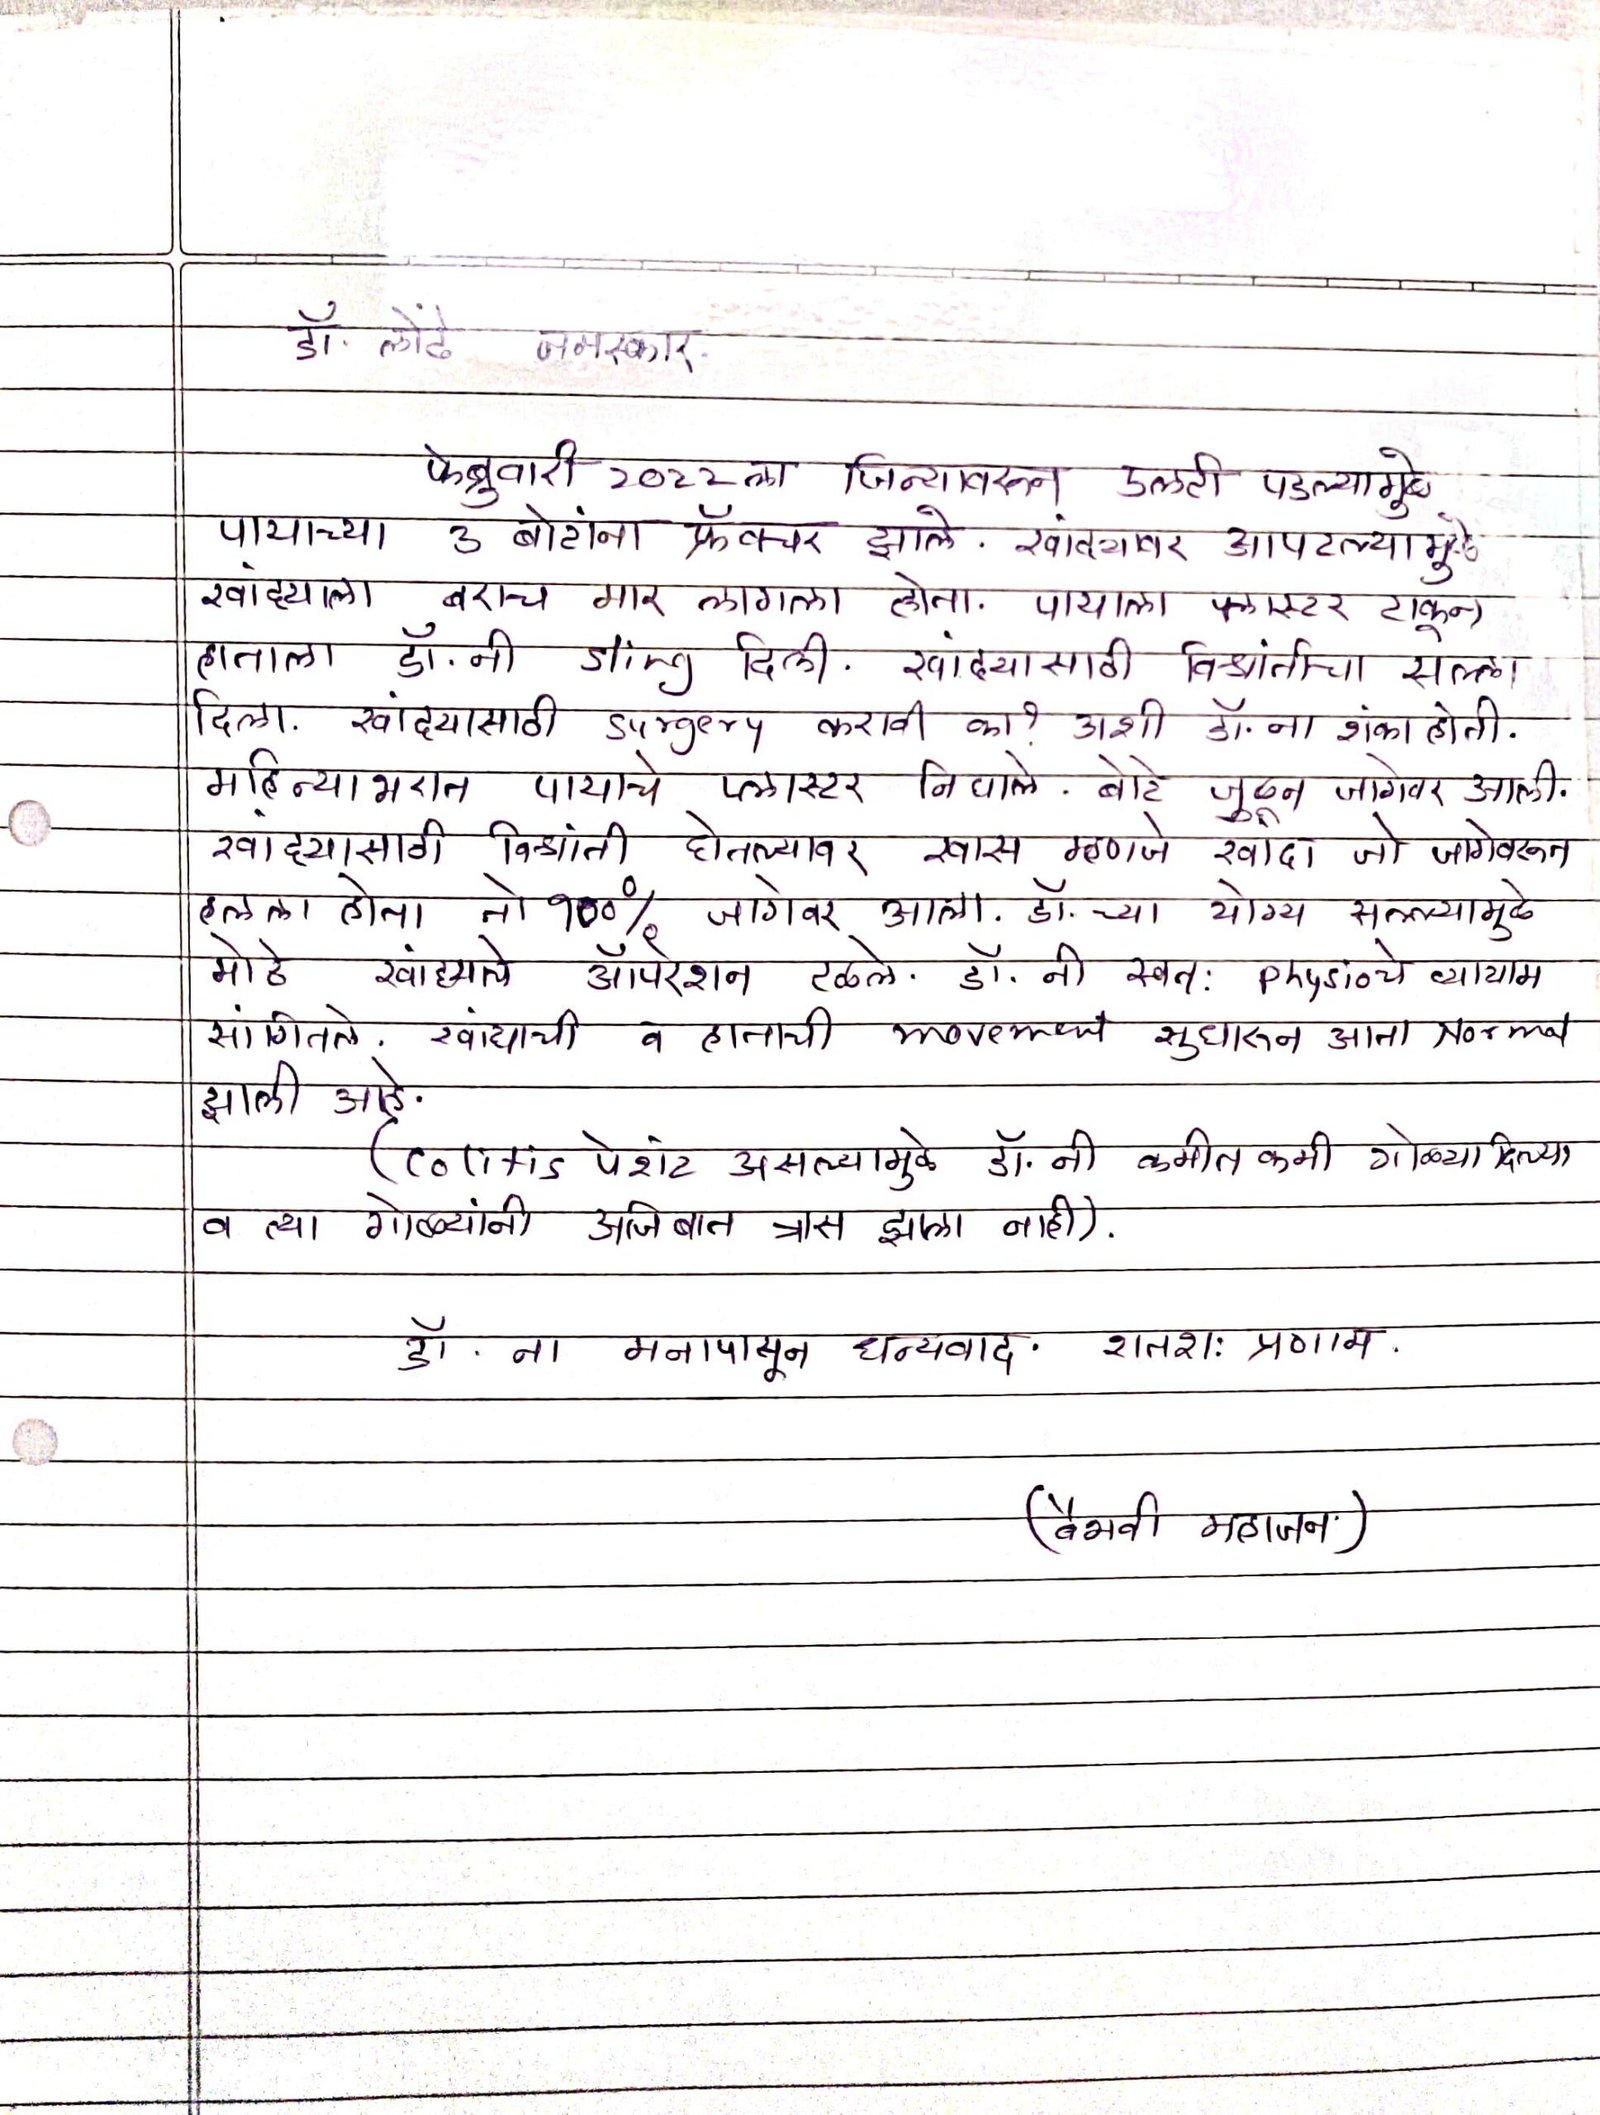 डॉ. लोंढे नमस्कार.
फेब्रुवारी २०२२ला जिन्यावरून उलटी पडल्यामुळे
पायाच्या ३ बोटांना फ्रॅक्चर झाले. खांद्यावर आपटल्यामुळे
खांद्याला बराच मार लागला होता. पायाला प्लास्टर टाकून
हाताला डॉ.नी sling दिली. खांद्यासाठी विश्रांतीचा सल्ला
दिला. खांद्यासाठी surgery करावी का? अशी डॉ.ना शंका होती.
महिन्याभरात पायाचे प्लास्टर निघाले. बोटे जुळून जागेवर आली.
खांद्यासाठी विश्रांती घेतल्यावर खास म्हणजे खांदा जो जागेवरून
हलला होता तो १००% जागेवर आला. डॉ.च्या योग्य सल्ल्यामुळे
मोठे खांद्याचे ऑपरेशन टळले. डॉ.नी स्वत: Physioचे व्यायाम
सांगितले. खांद्याची व हाताची movement सुधारून आता Normal
झाली आहे.
(colitis पेशंट असल्यामुळे डॉ.नी कमीत कमी गोळ्या दिल्या
व त्या गोळ्यांनी अजिबात त्रास झाला नाही).
डॉ. ना मनापासून धन्यवाद. शतश: प्रणाम.
(वैभवी महाजन.)